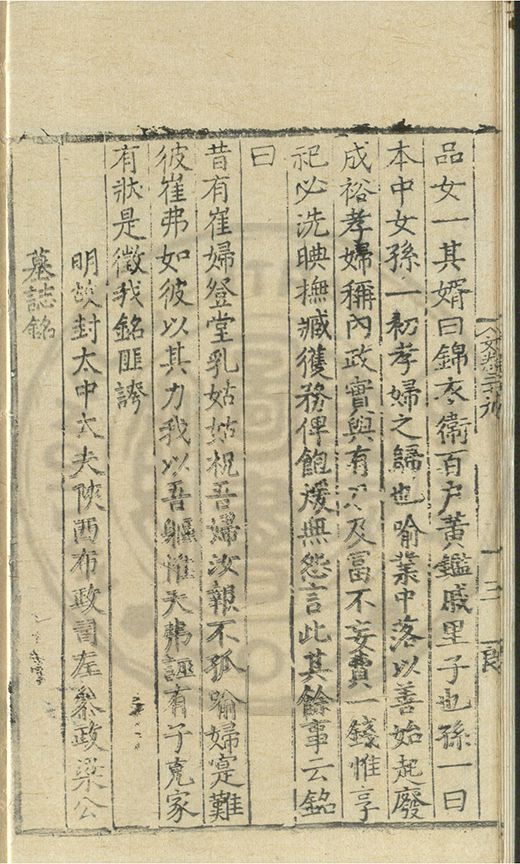 品女一其婿曰錦衣衛百户黃鑑戚里子也孫一曰
本中女孫一初孝婦之歸也喻業中落以善始起廢
成裕孝婦稱內政實與有力及富不妄費一錢惟享
祀必洗腆撫臧獲務俾飽煖無怨言此其餘事云銘
曰
昔有崔婦登堂乳姑姑祝吾婦汝報不孤喻婦寔難
彼崔弗如彼以其力我以吾軀惟天弗誣有子克家
有狀是徵我銘匪誇
明故封太中大夫陝西布政司左叅政梁公
墓誌銘